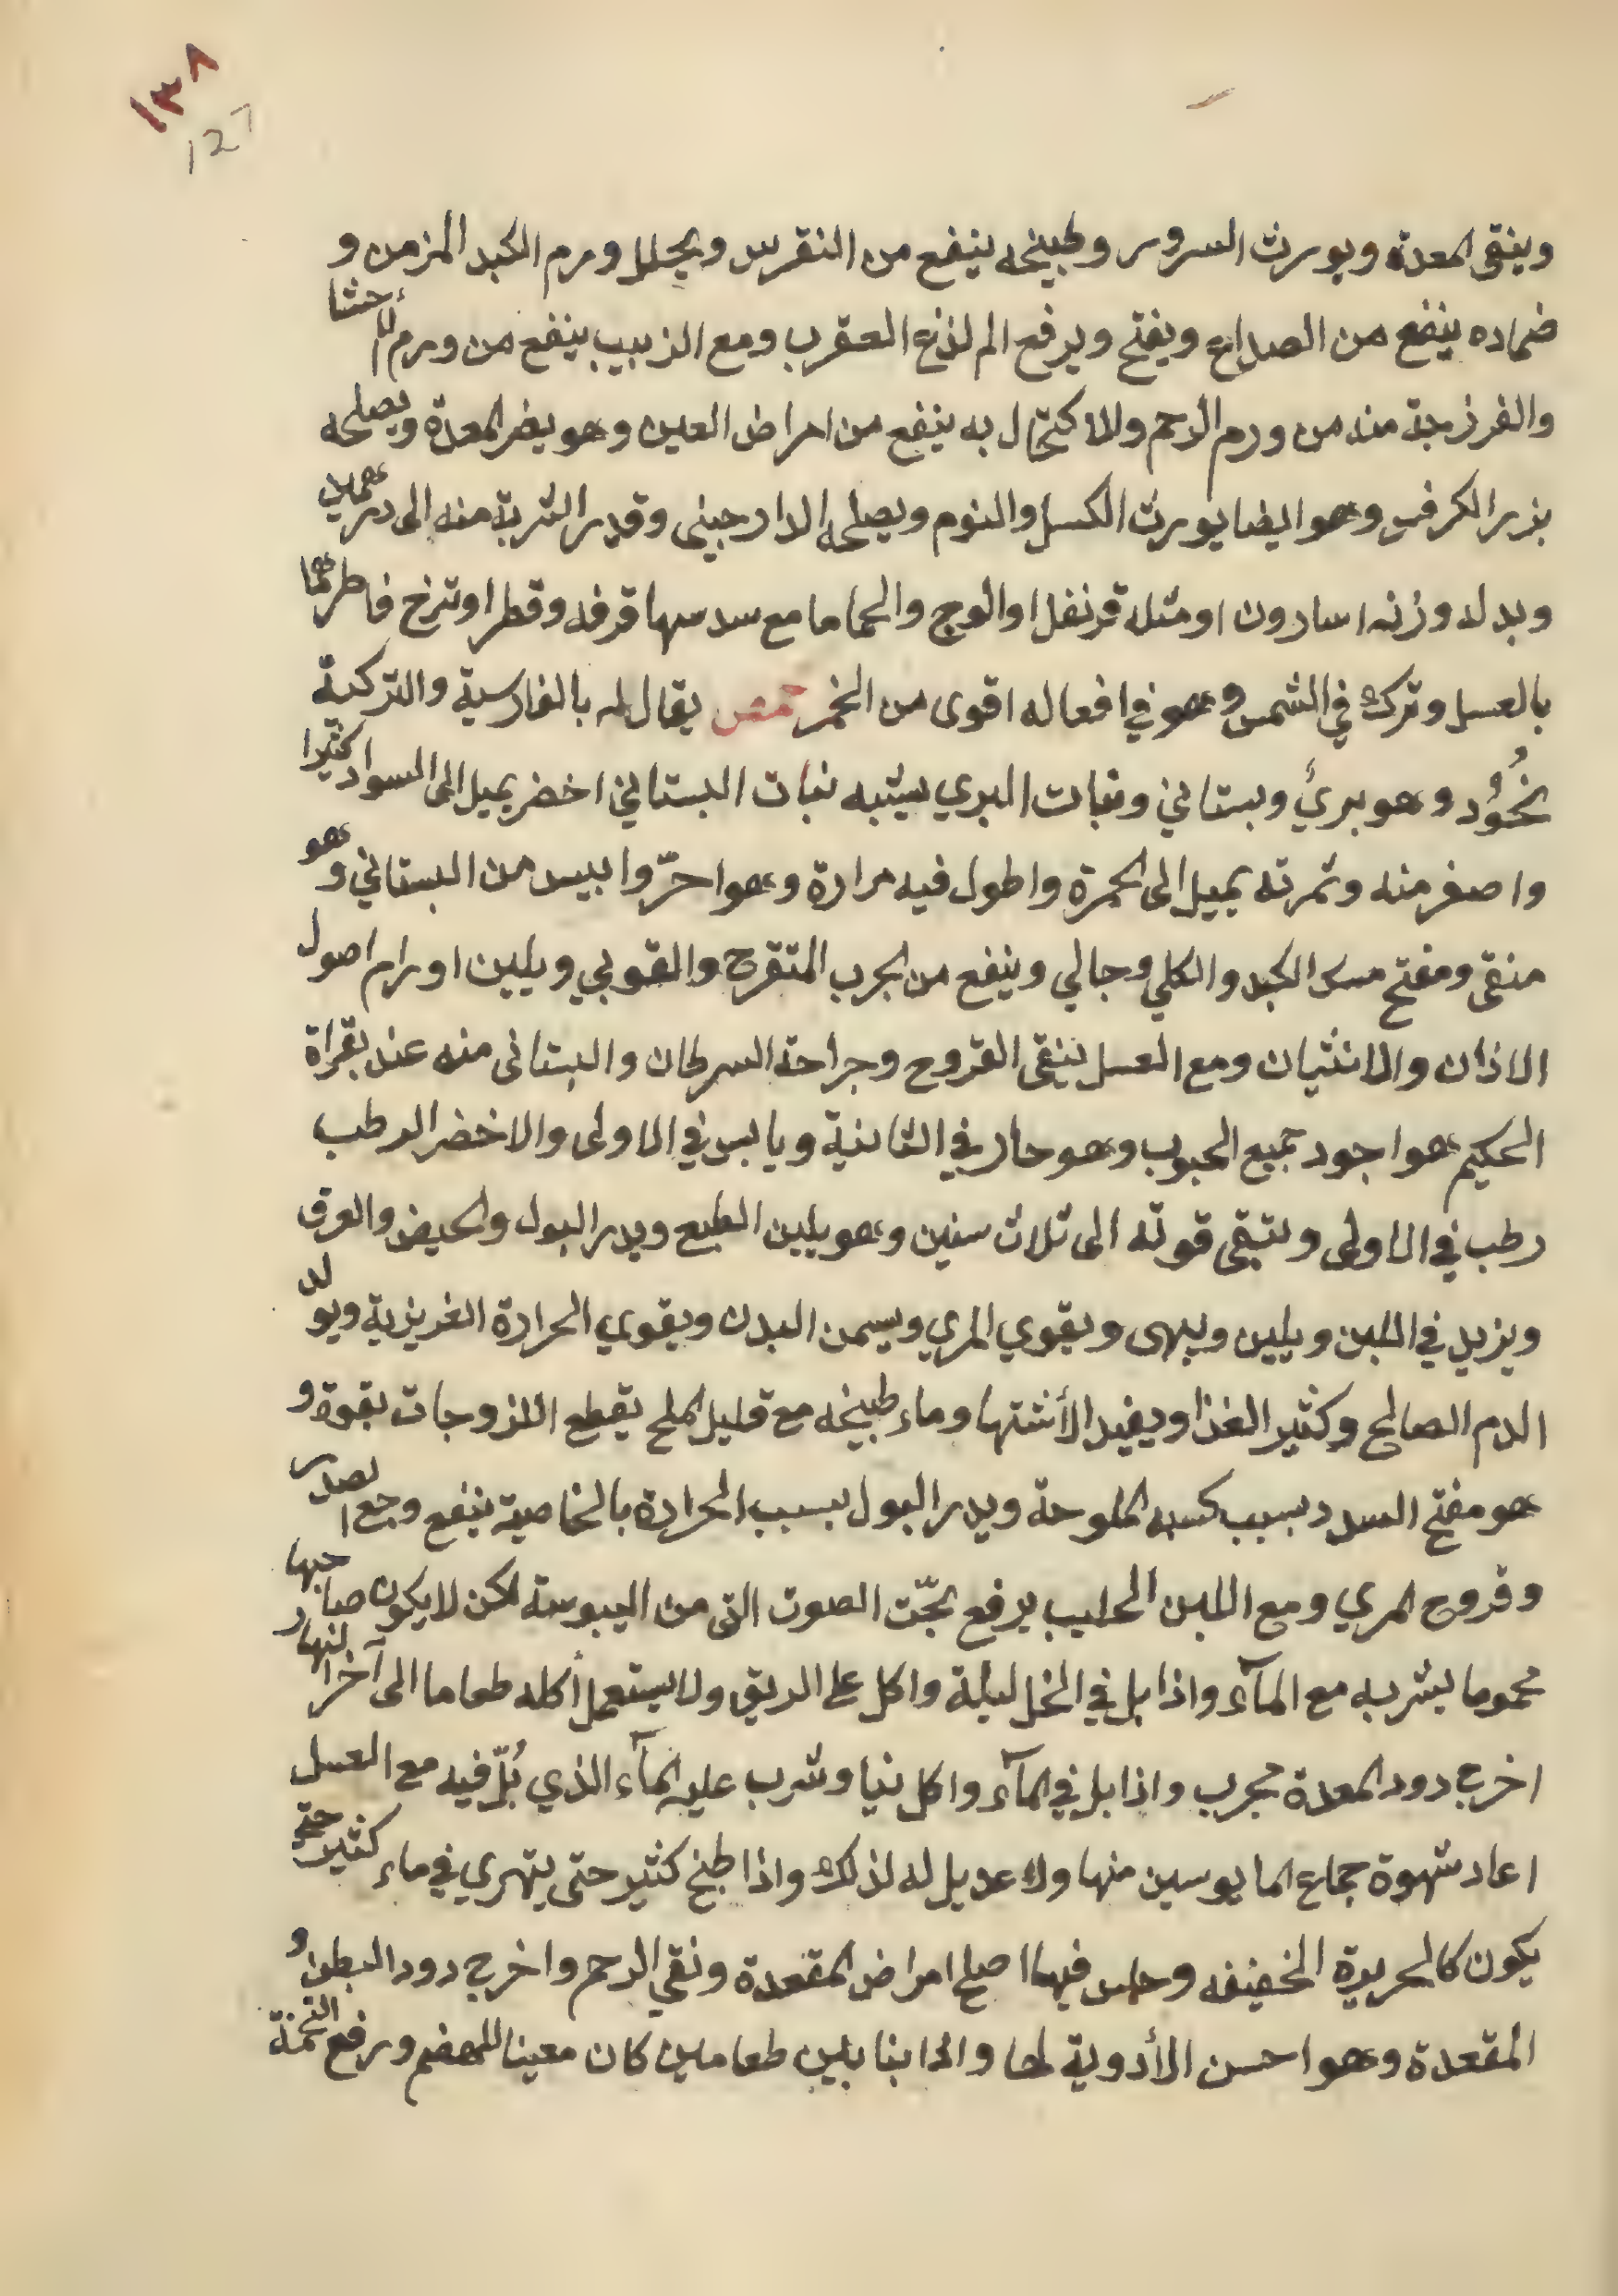 ١٣٨
127
وينقى المعدة ويورث السرور وطبيخه ينفع من النقرس ويحلل ورم الكبد المزمن و
ضماده ينفع من الصداع ويفتح ويرفع الم لذع العقرب ومع الزبيب ينفع من ورم الأحشا
والفرزجة منه من ورم الرحم والاكتحال به ينفع من امراض العين وهو يضر المعدة ويصلحه
بزر الكرفس وهو ايضا يورث الكسل والنوم ويصلحه الدارجينى وقدر الشربة منه الى درهمين
وبدله وزنه اسارون او مثله قرنفل او الوج والحماما مع سدسها قرفه وقطر اوتزخ
بالعسل وترك في الشمس وهو في افعاله اقوى من الخمر حمص يقال له بالفارسية والتركية
نخُوُد وهو برئ وبستاني ونبات البري يشبه نبات البستاني اخضر يميل الى السواد كثيرا
واصغر منه وثمرته يميل الى الحمرة واطول فيه مرارة وهو احرّ وايبس من البستاني وهو
منقى ومفتح سدد الكبد والكلي وجالي وينفع من الجرب المتقرح والقوبي ويلين اورام اصول
الاذان والانثيان ومع العسل ينقى القروح وجراحة السرطان والبستانى منه عند بقراة
الحكيم هو اجود جميع الحبوب وهو حار في الثانية ويابس في الاولى والاخضر الرطب
رطب في الاولى وتبقى قوته الى ثلاث سنين وهو يلين الطبع ويدر البول والحيض والعرق
ويزيد في اللبن ويلين ويبهى ويقوي المري ويسمن البدن ويقوي الحرارة الغريزية ويولد
الدم الصالح وكثير الغذا ويفيد الأشتها وماء طبيخه مع قليل الملح يقطع اللزوجات بقوة و
هو مفتح السدد بسبب كسبه الملوحة ويدر البول بسبب الحرارة بالخاصية ينفع وجع الصدر
وقروح المري ومع اللبن الحليب يرفع بحّت الصوت التى من اليبوسة لكن لا يكون صاحبها
محموما يشربه مع المآء واذا بل في الخل ليلة واكل على الريق ولا يستعمل أكله طعاما الى آخر النهار
اخرج دود المعدة مجرب واذا بل في المآء واكل نيا وشرب عليه المآء الذي بُلّ فيه مع العسل
اعاد شهوة جماع المايوسين منها ولا عديل له لذلك واذا طبخ كثير حتى يتهري في ماء كثير حتى
يكون كالحريرة الخفيفه وجلس فيها اصلح امراض المقعدة ونقي الرحم واخرج دود البطن و
المقعدة وهو احسن الأدوية لها واذا بنا بين طعامين كان معينا للهضم ورفع التخمة